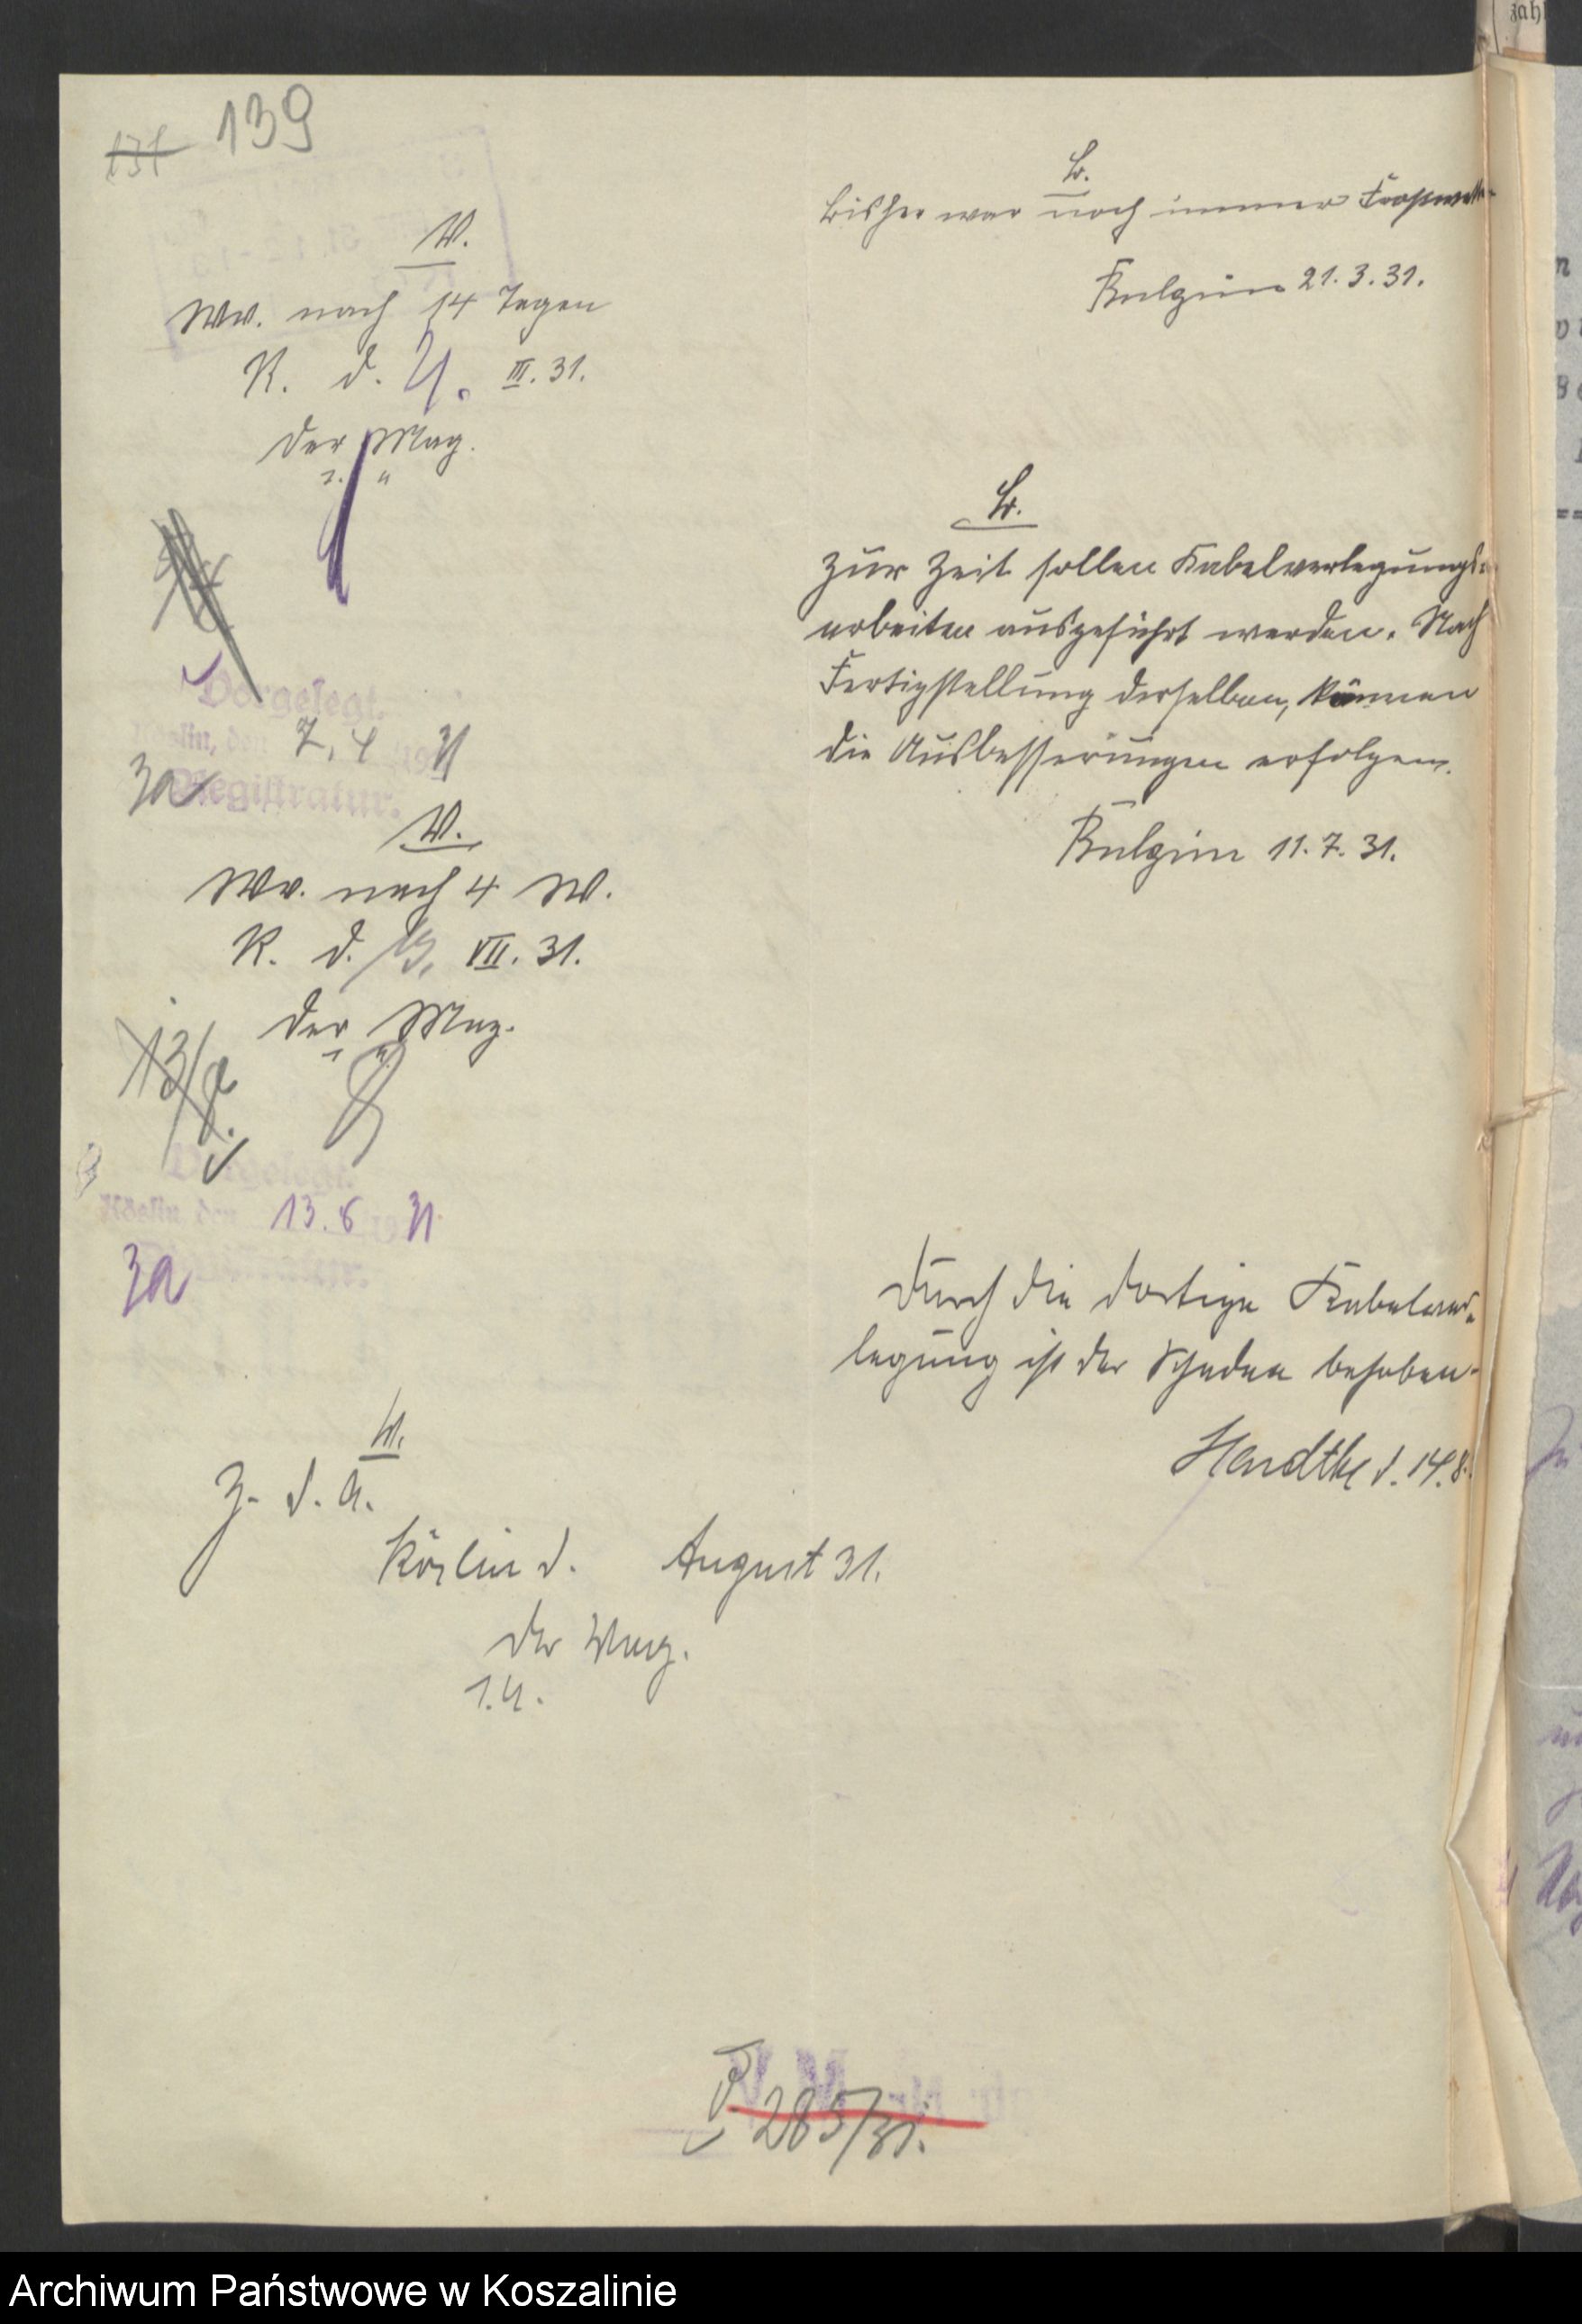 131 139
V.
Wv. nach 14 Tagen
K. d. 21. III. 31.
Der Mag.
Vorgelegt.
Köslin, den 7. 4 1931
Registratur.
3a
V.
Wv. nach 4 W.
K. d. 13. VII. 31.
Der Mag.
13/8.
Vorgelegt.
Köslin den 13. 8 1931
3a
V.
Z. d. A.
Köslin d. August 31.
Der Mag.
I. V.
B.
Bisher war noch immer Frostwetter
21. 3. 31.
B.
Zur Zeit sollen Kabelverlegungs-
arbeiten ausgeführt werden. Nach
Fertigstellung derselben, können
die Ausbesserungen erfolgen.
11. 7. 31.
Durch die dortige Kabelver-
legung ist der Schaden behoben.
Handtke d. 14. 8.
285/31.
Archiwum Państwowe w Koszalinie